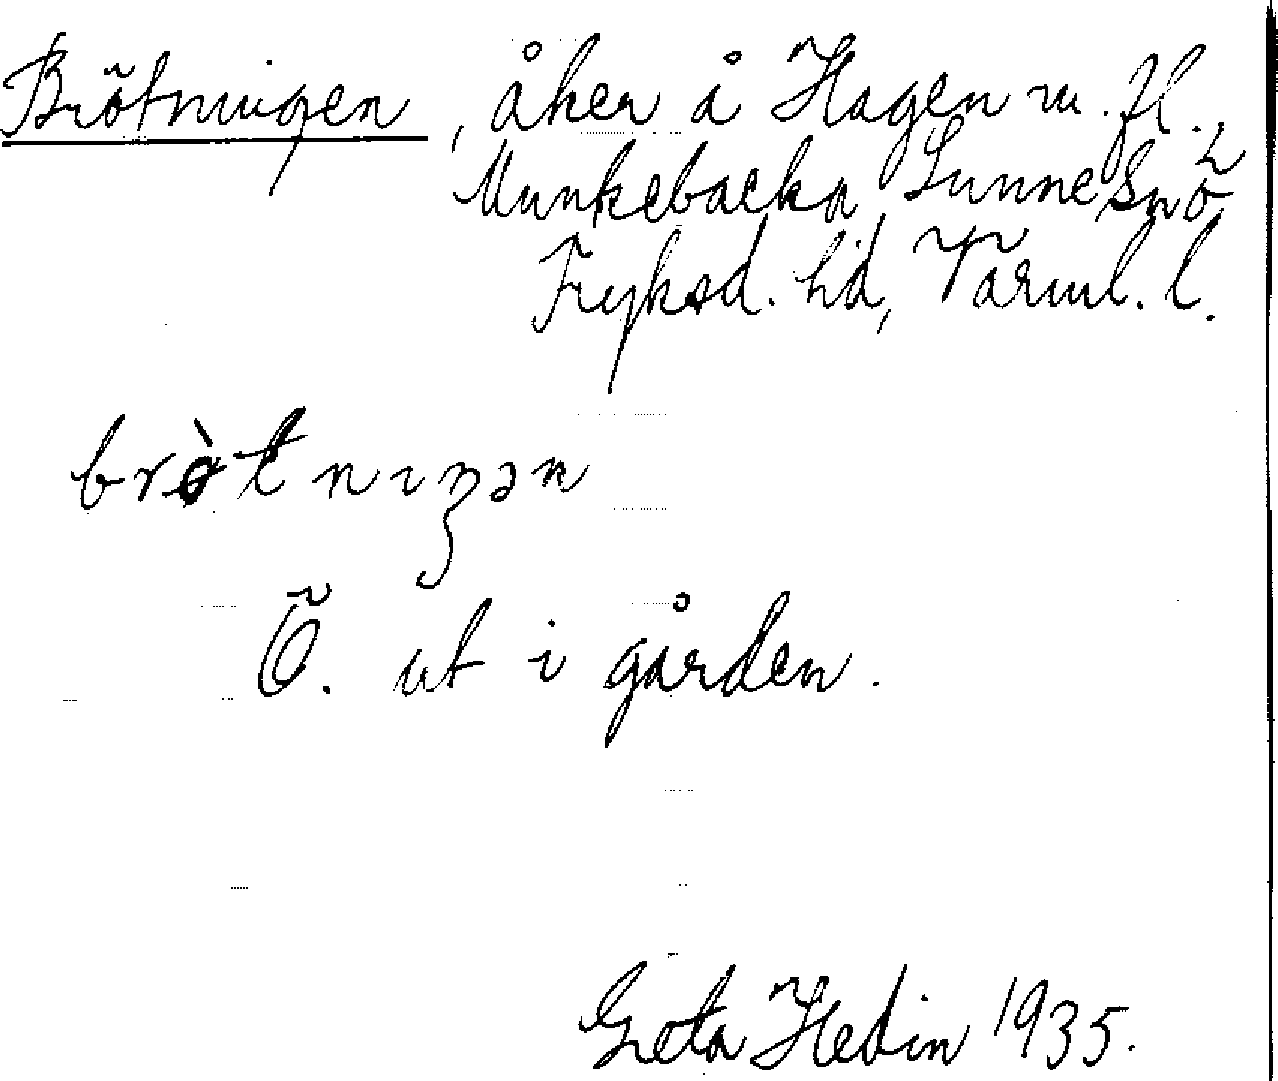 Brötningen, åker å Hagen m. fl.,
Munkebacka, Sunne Sn ö
Fryksd. hd, Värml. l.
bròtnıŋən
Ö. ut i gården.
Greta Hedin 1935.